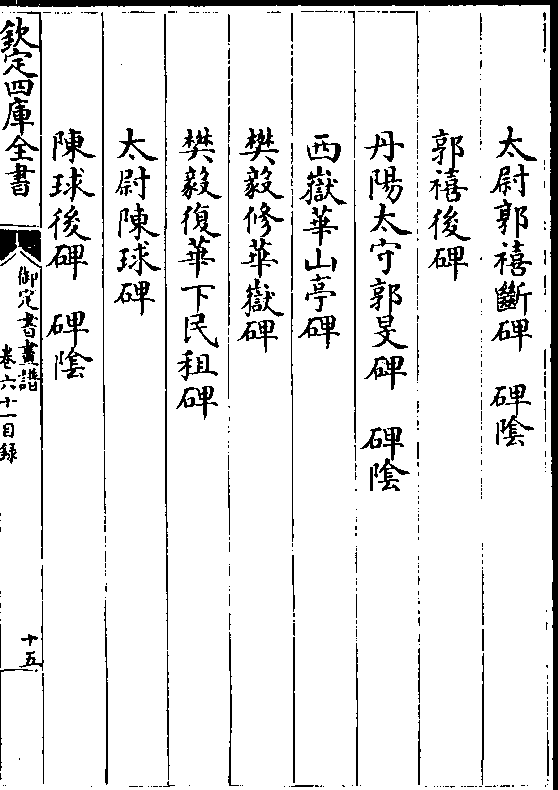 太尉郭禧斷碑　碑陰
郭禧後碑
丹陽太守郭旻碑　碑陰
西嶽華山亭碑
樊毅修華嶽碑
樊毅復華下民租碑
太尉陳球碑
陳球後碑　碑陰
欽定四庫全書
御定書畫譜
卷六十一目録
十五